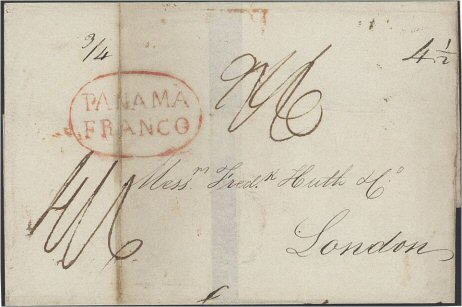 3/4
4 1/2
PANAMA
FRANCO
Mess.rs Fred.k Huth & Co
London